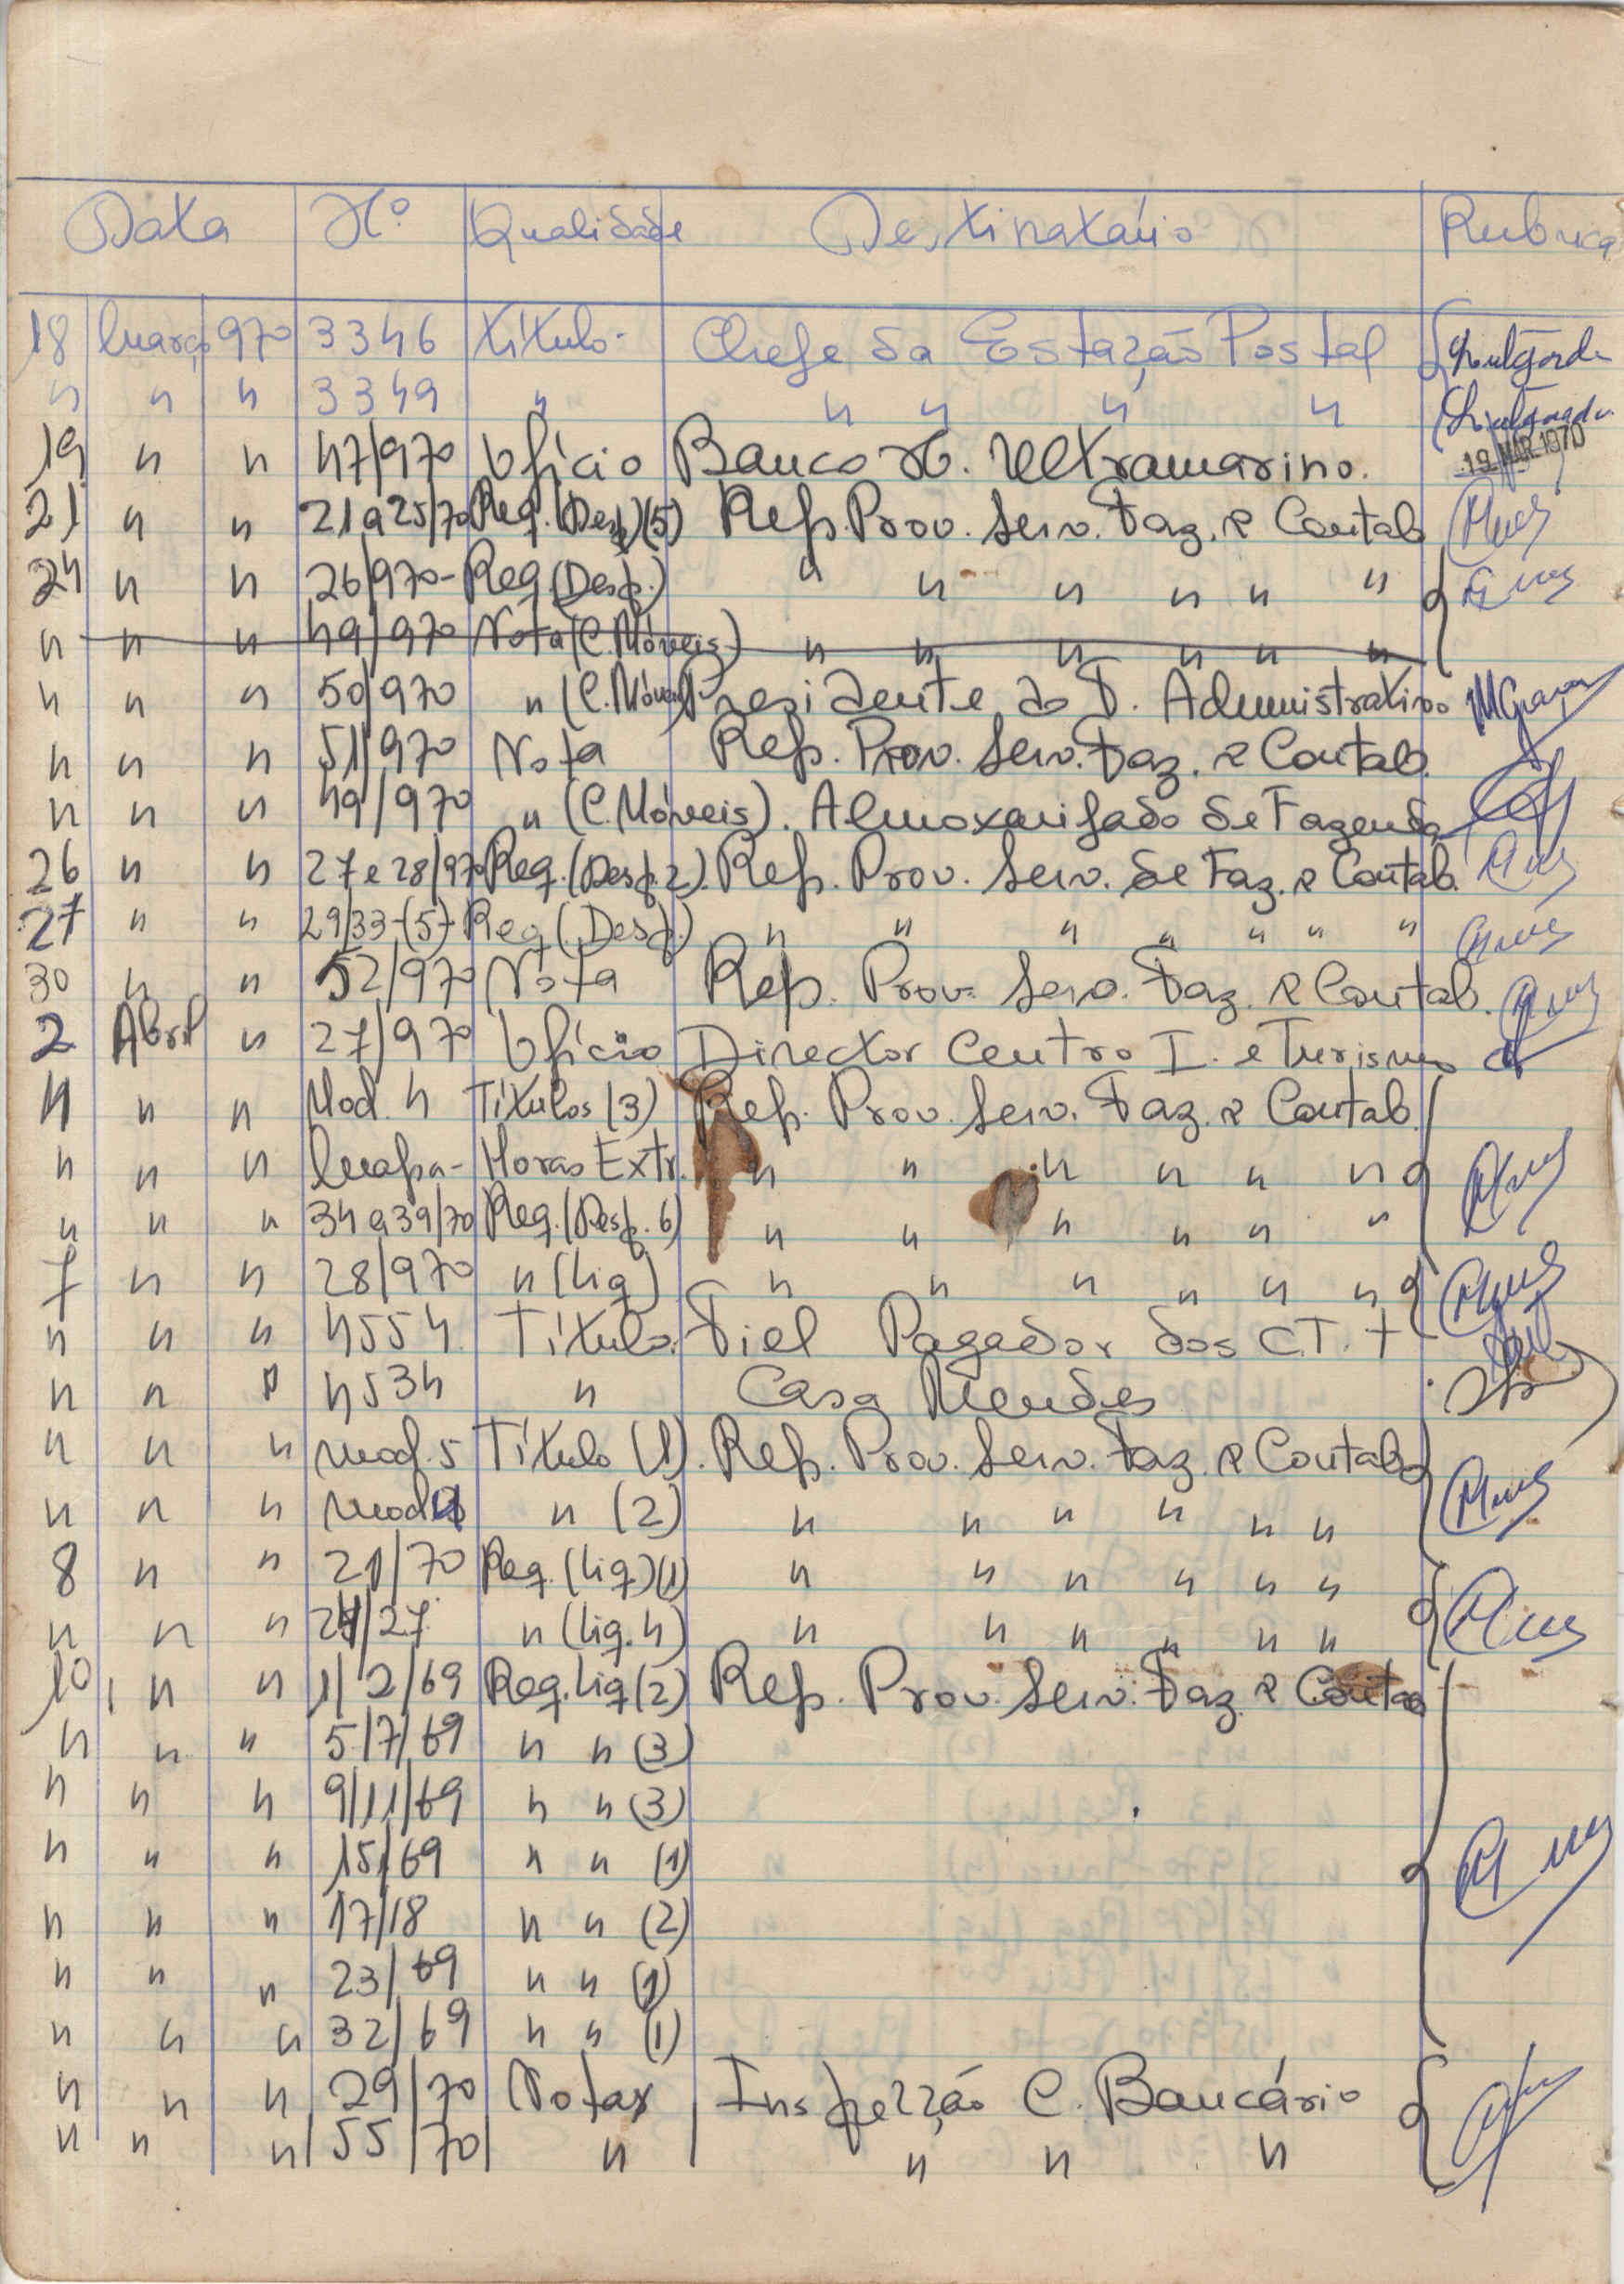 Data Nº Qualidade Destinatário Rubrica
18 Março 970 3346 Título - Chefe da Estação Postal
" " " 3349 " " " " "
19 " " 47/970 Ofício Banco N. Ultramarino. 19 MAR. 1970
21 " " 21 a 25/70 Req. (Desp.) (5) Rep. Prov. Serv. Faz. e Contab
24 " " 26/970 - Req. (Desp.) " " " " " "
" " " 49/970 Nota (C. Móveis) " " " " " "
" " " 50/970 " (C. Móveis) Presidente do T. Administrativo
" " " 51/970 Nota Rep. Prov. Serv. Faz. e Contab.
" " " 49/970 " (C. Móveis). Almoxarifado de Fazenda
26 " " 27 e 28/970 Req. (Desp. 2). Rep. Prov. Serv. de Faz. e Contab.
27 " " 29/33 - (5) - Req. (Desp.) " " " " " " "
30 " " 52/970 Nota Rep. Prov. Serv. Faz. e Contab.
2 Abril " 27/970 Ofício Director Centro I. e Turismo
4 " " Mod. 4 Títulos (3) Rep. Prov. Serv. Faz. e Contab.
" " " Mapa - Horas Extr. " " " " " "
" " " 34 a 39/70 Req. (Desp. 6) " " " " " "
7 " " 28/970 " (Liq) " " " " " "
" " " 4554 Título. Fiel Pagador dos C.T.T
" " " 4534 " Casa Mendes
" " " Mod. 5 Título (1). Rep. Prov. Serv. Faz. e Contab
" " " Mod. " (2) " " " " " "
8 " " 21/70 Req. (Liq) (1) " " " " " "
" " " 24/27 " (Liq. 4) " " " " " "
10 " " 1/2/69 Req. Liq (2) Rep. Prov. Serv. Faz. e Contab
" " " 5/7/69 " " (3)
" " " 9/11/69 " " (3)
" " " 15/69 " " (1)
" " " 17/18 " " (2)
" " " 23/69 " " (1)
" " " 32/69 " " (1)
" " " 29/70 Notas Inspecção C. Bancário
" " " 55/70 " " " "